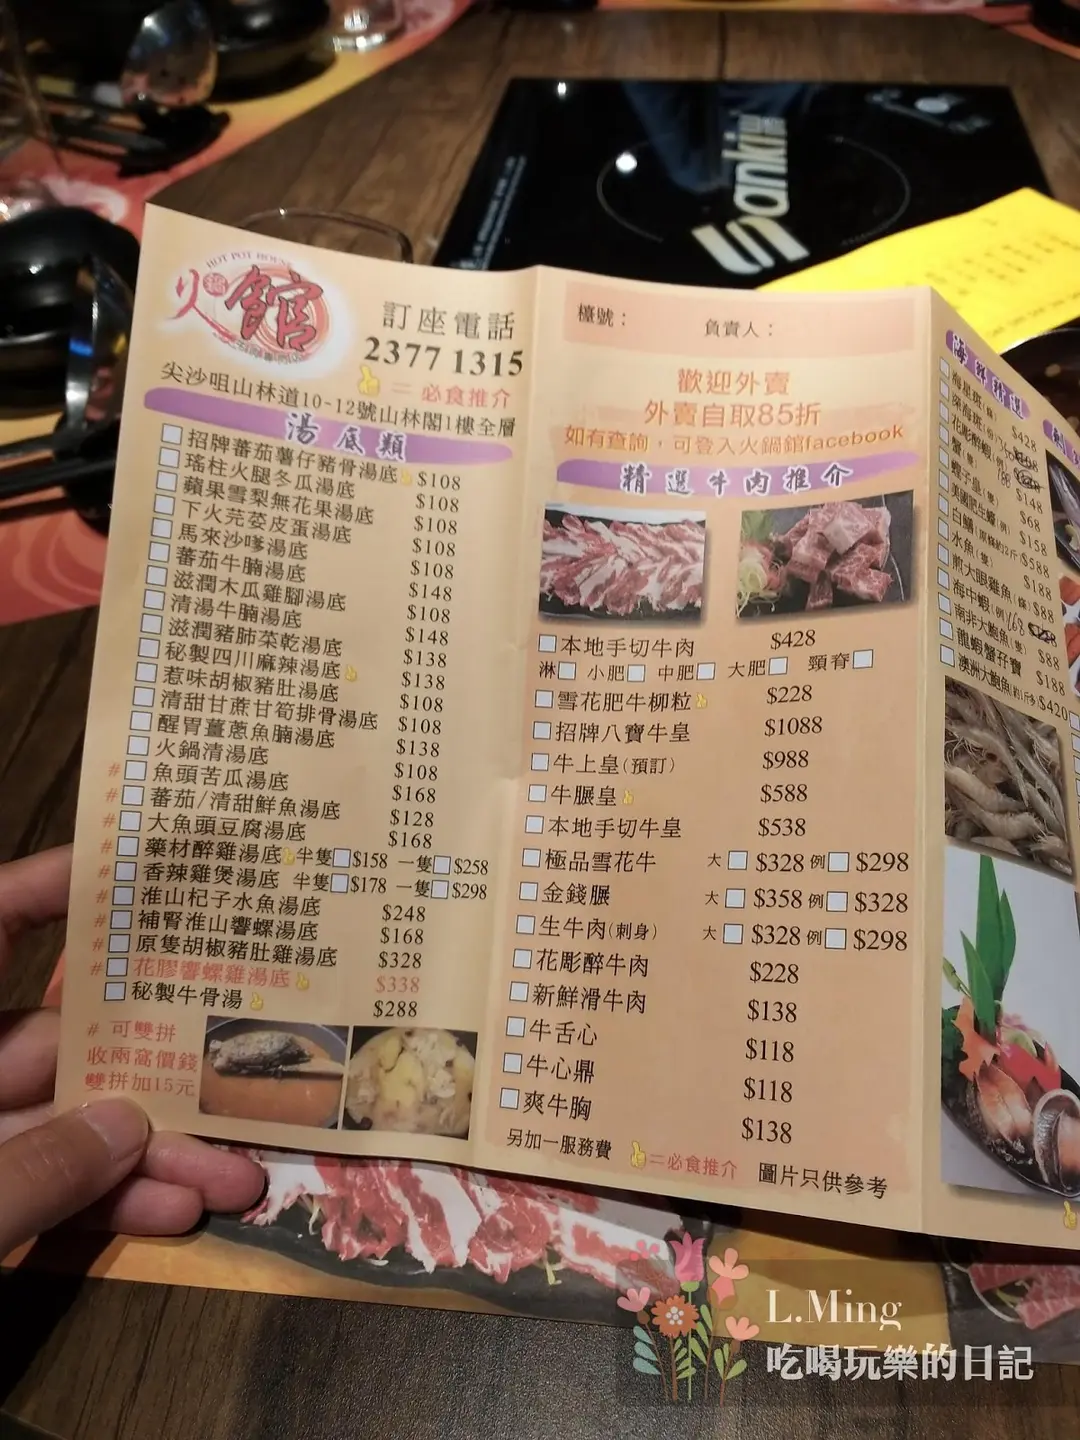 HOT POT HOUSE
火鍋館
訂座電話
2377 1315
= 必食推介
尖沙咀山林道10-12號山林閣1樓全層
湯底類
招牌蕃茄薯仔豬骨湯底 $108
瑤柱火腿冬瓜湯底 $108
蘋果雪梨無花果湯底 $108
下火芫荽皮蛋湯底 $108
馬來沙嗲湯底 $108
蕃茄牛腩湯底 $148
滋潤木瓜雞腳湯底 $108
清湯牛腩湯底 $148
滋潤豬肺菜乾湯底 $138
秘製四川麻辣湯底 $138
惹味胡椒豬肚湯底 $108
清甜甘蔗甘筍排骨湯底 $108
醒胃薑蔥魚腩湯底 $138
火鍋清湯底 $108
# 魚頭苦瓜湯底 $168
# 蕃茄/清甜鮮魚湯底 $128
# 大魚頭豆腐湯底 $168
# 藥材醉雞湯底 半隻 $158 一隻 $258
# 香辣雞煲湯底 半隻 $178 一隻 $298
# 淮山杞子水魚湯底 $248
# 補腎淮山響螺湯底 $168
# 原隻胡椒豬肚雞湯底 $328
# 花膠響螺雞湯底 $338
秘製牛骨湯 $288
# 可雙拼
收兩窩價錢
雙拼加15元
檯號：
負責人：
歡迎外賣
外賣自取85折
如有查詢，可登入火鍋館facebook
精選牛肉推介
本地手切牛肉 $428
淋 小肥 中肥 大肥 頸脊
雪花肥牛柳粒 $228
招牌八寶牛皇 $1088
牛上皇(預訂) $988
牛𦟌皇 $588
本地手切牛皇 $538
極品雪花牛 大 $328 例 $298
金錢𦟌 大 $358 例 $328
生牛肉(刺身) 大 $328 例 $298
花彫醉牛肉 $228
新鮮滑牛肉 $138
牛舌心 $118
牛心鼎 $118
爽牛胸 $138
另加一服務費
=必食推介
圖片只供參考
海鮮精選
海星斑(條) $428
深海斑(份)
花彫醉蝦(例)
蟹(隻) $148
蟶子皇(隻) $68
美國肥生蠔(例) $158
白鱔(原條約2斤) $588
水魚(隻) $188
煎大眼雞魚(條) $88
海中蝦(例) 168
南非大鮑魚(隻) $88
龍蝦蟹仔寶 $188
澳洲大鮑魚(約1斤多) $420
Sanki
L.Ming
吃喝玩樂的日記